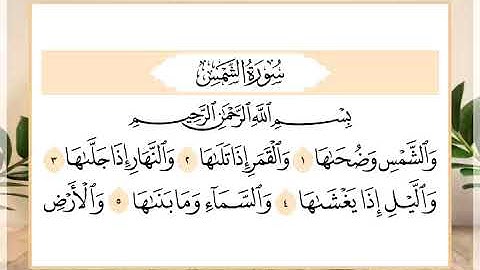 سُورَةُ الشَّمْسِ
بِسْمِ اللَّهِ الرَّحْمَٰنِ الرَّحِيمِ
وَالشَّمْسِ وَضُحَىٰهَا ١ وَالْقَمَرِ إِذَا تَلَىٰهَا ٢ وَالنَّهَارِ إِذَا جَلَّىٰهَا ٣
وَالَّيْلِ إِذَا يَغْشَىٰهَا ٤ وَالسَّمَآءِ وَمَا بَنَىٰهَا ٥ وَالْأَرْضِ